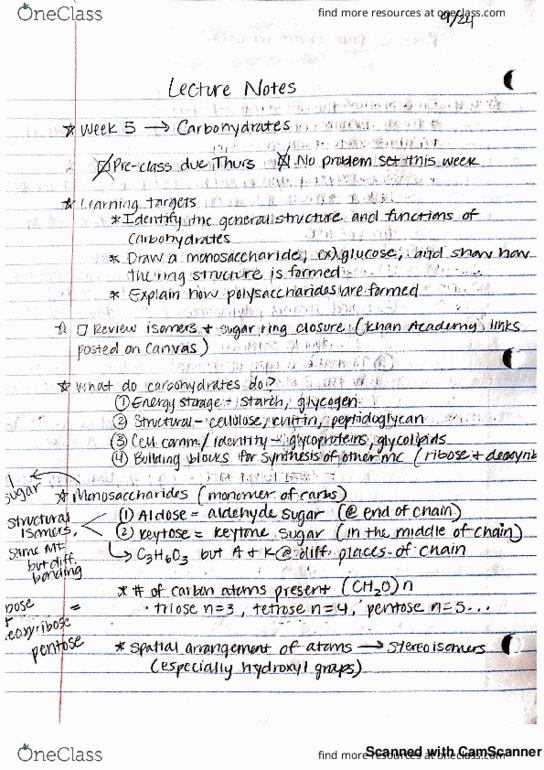 OneClass
find more resources at oneclass.com
9/24
Lecture Notes
☆ Week 5 → Carbohydrates
☒ Pre-class due Thurs ☒ No problem set this week
☆ Learning targets
* Identify the general structure and functions of
carbohydrates
* Draw a monosaccharide, ex) glucose, and show how
the ring structure is formed
* Explain how polysaccharides are formed
☆ □ Review isomers + sugar ring closure (Khan Academy links
posted on Canvas)
☆ What do carbohydrates do?
① Energy storage - starch, glycogen
② Structural - cellulose, chitin, peptidoglycan
③ Cell comm./identity - glycoproteins, glycolipids
④ Building blocks for synthesis of other mc (ribose + deoxyrib
1 sugar
☆ Monosaccharides (monomer of carbs)
structural isomers,
same MF
but diff.
bonding
(1) Aldose = aldehyde sugar (@ end of chain)
(2) Ketose = ketone sugar (in the middle of chain)
↳ C3H6O3 but A + K @ diff. places of chain
* # of carbon atoms present (CH2O)n
· triose n=3, tetrose n=4, pentose n=5...
bose
+
eoxyribose
=
pentose
* spatial arrangement of atoms → stereoisomers
(especially hydroxyl groups)
OneClass
find more resources at oneclass.com
Scanned with CamScanner